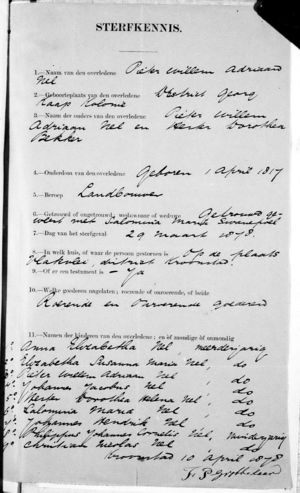 STERFKENNIS.
1.—Naam van den overledene Pieter Willem Adriaan
Nel
2.—Geboorteplaats van den overledene District Georg
Kaap Kolonie
3.—Naam der ouders van den overledene Pieter Willem
Adriaan Nel en Hester Dorothea
Bekker
4.—Ouderdom van den overledene Geboren 1 April 1817
5.—Beroep Landbouwer
6.—Getrouwd of ongetrouwd, weduwnaar of weduwe Getrouwd ge-
weest met Salomina Maria
7.—Dag van het sterfgeval 29 Maart 1878
8.—In welk huis, of waar de persoon gestorven is Op de plaats
Vlakvlei, district Kroonstad
9.—Of er een testament is — Ja
10.—Welke goederen nagelaten; roerende of onroerende, of beide
Roerende en Onroerende goederen
11.—Namen der kinderen van den overledene; en of mondig of onmondig
Anna Elizabetha Nel, meerderjarig
Elizabetha Susanna Maria Nel, do
Pieter Willem Adriaan Nel, do
Johannes Jacobus Nel, do
Hester Dorothea Helena Nel, do
Salomina Maria Nel, do
Johannes Hendrik Nel, do
Philippus Johannes Cornelis Nel, minderjarig
Christiaan Nel do
Kroonstad 10 April 1878